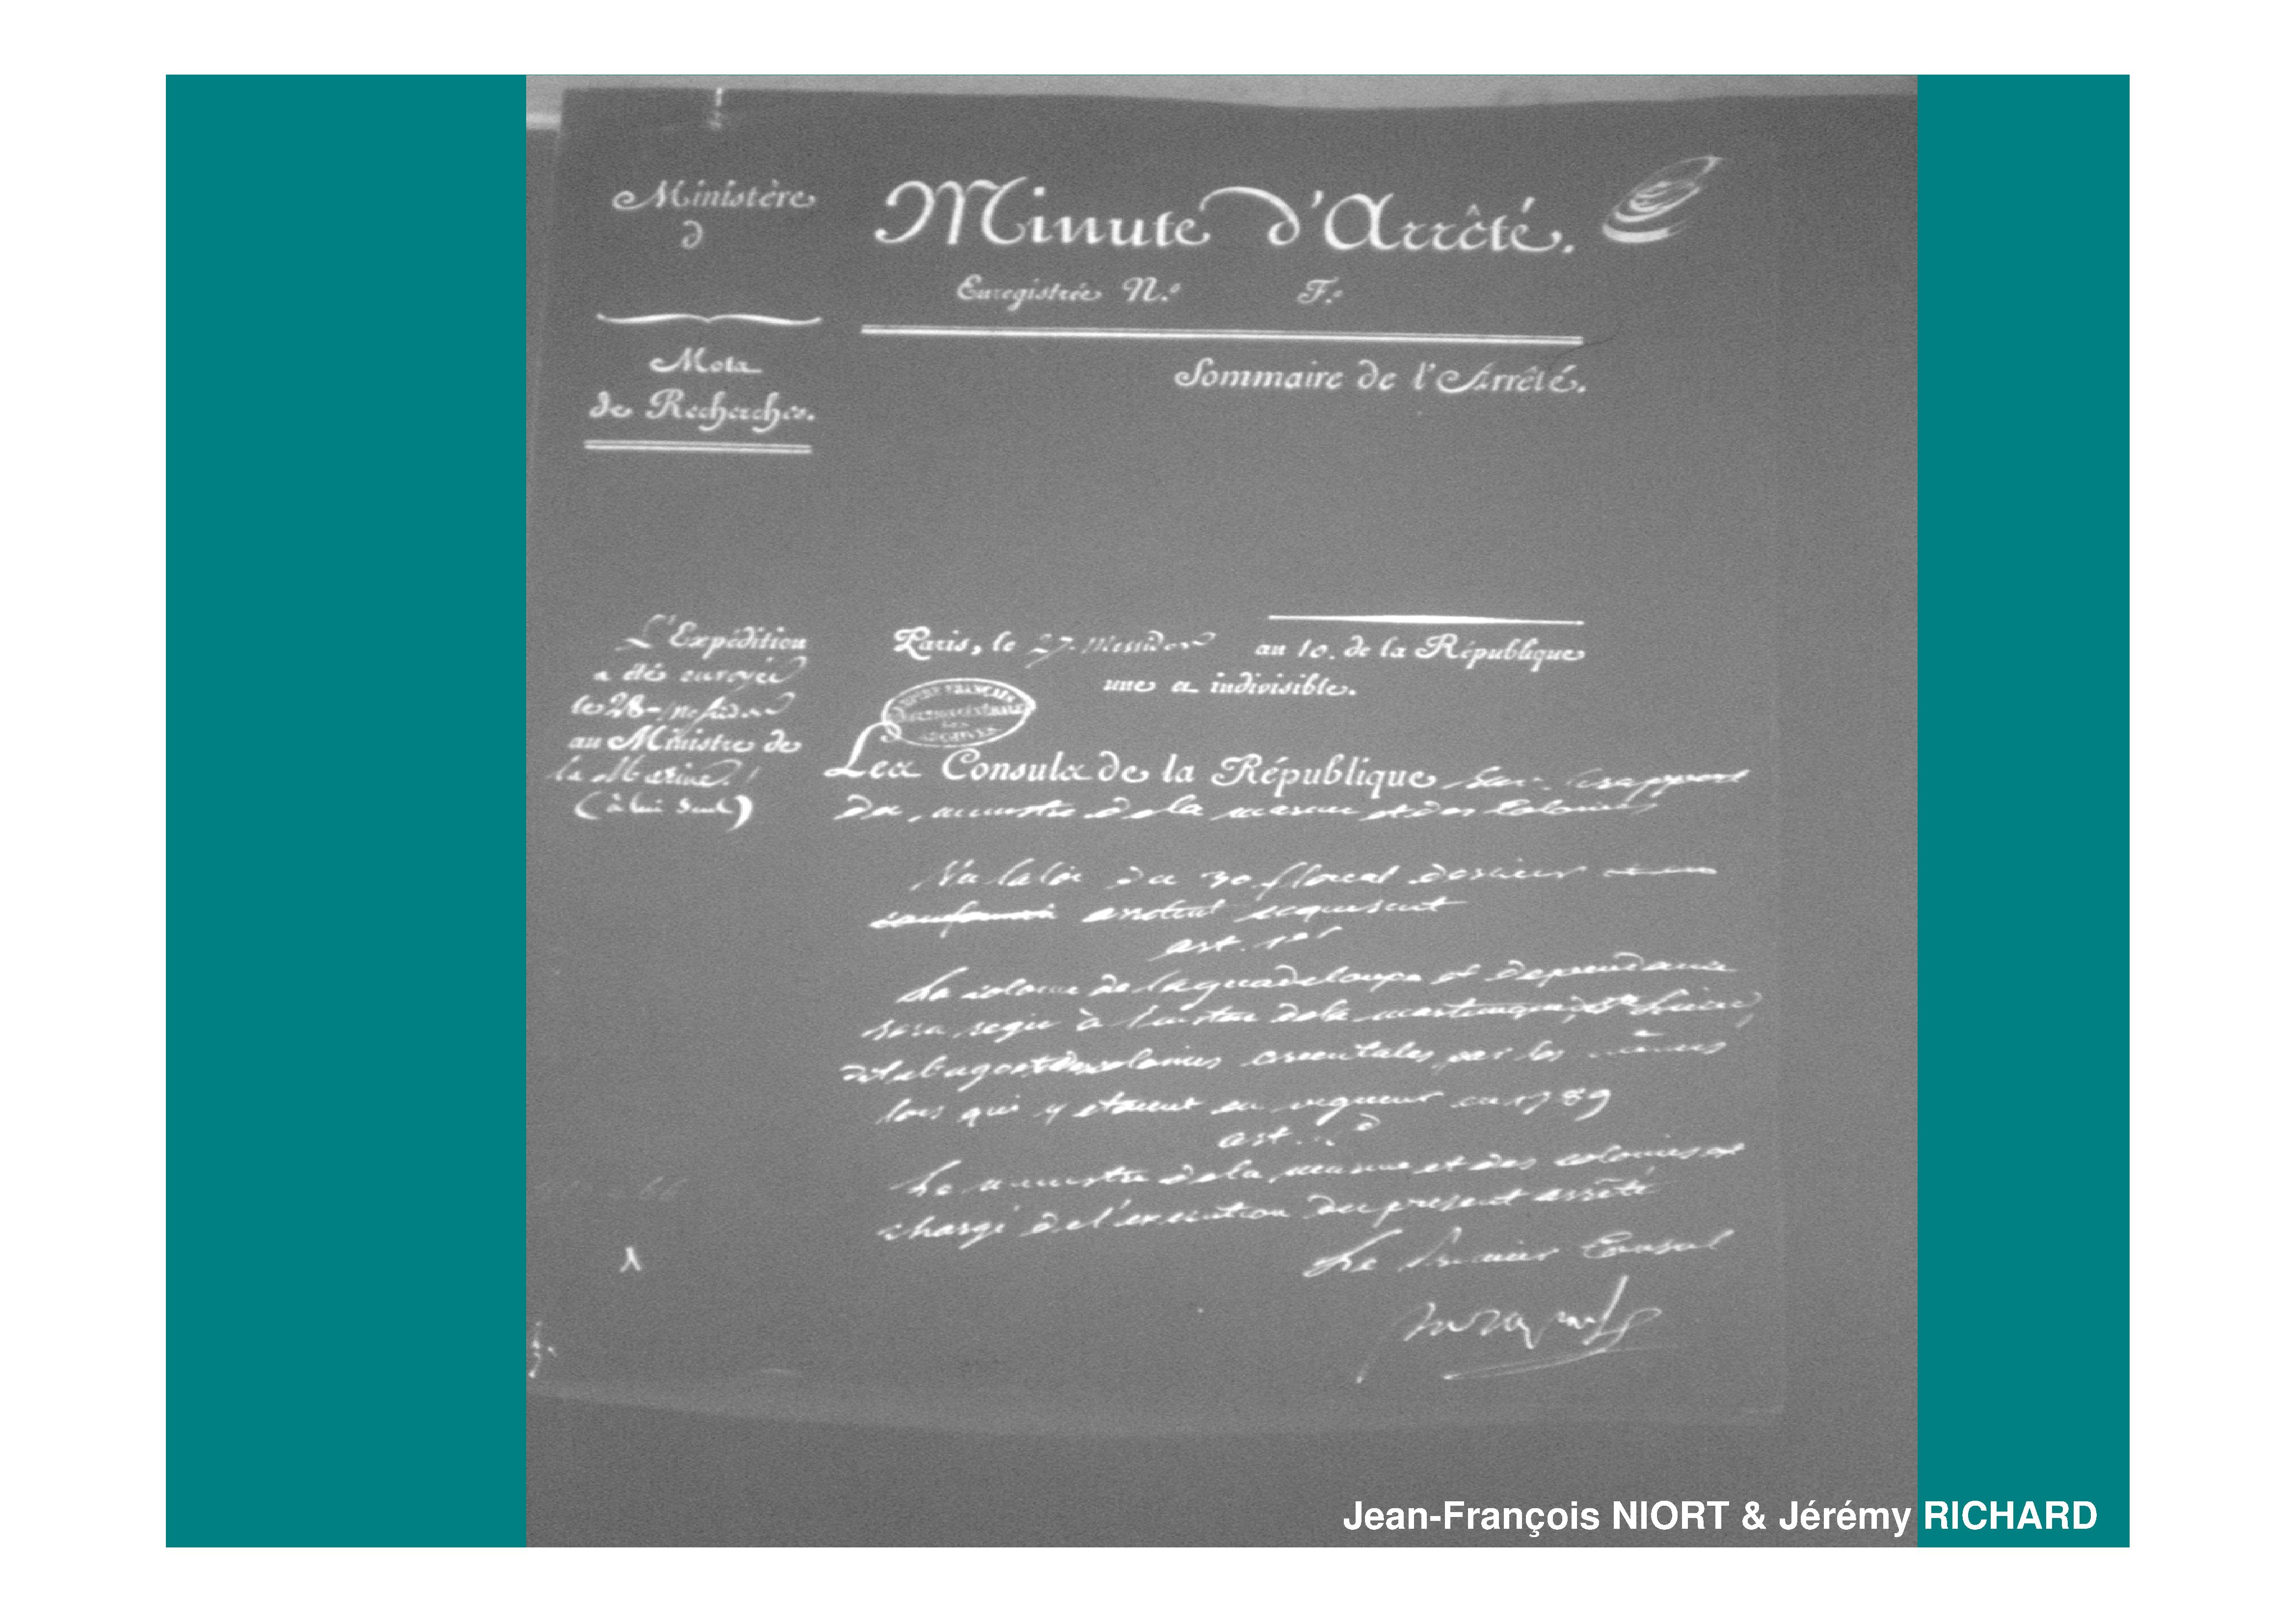 Ministère
d
Minute d'Arrêté.
Enregistrée N.o F.o
Mots
de Recherches.
Sommaire de l'Arrêté.
L'Expédition
a été envoyée
le 28 messidor
au Ministre de
la Marine.
(à lui seul)
Paris, le 27 Messidor an 10. de la République
une et indivisible.
EMPIRE FRANÇAIS
DIRECTION GÉNÉRALE
DES
ARCHIVES
Les Consuls de la République sur le rapport
du ministre de la marine et des Colonies
Vu la loi du 30 floréal dernier
arretent ce qui suit
art. 1er
La colonie de la guadeloupe et dependances
sera regie à l'instar de la martinique, de Ste Lucie,
de tabago et des colonies orientales, par les mêmes
lois qui y etaient en vigueur en 1789
art. 2
Le ministre de la marine et des colonies est
chargé de l'execution du present arrêté
Le Premier Consul
Jean-François NIORT & Jérémy RICHARD